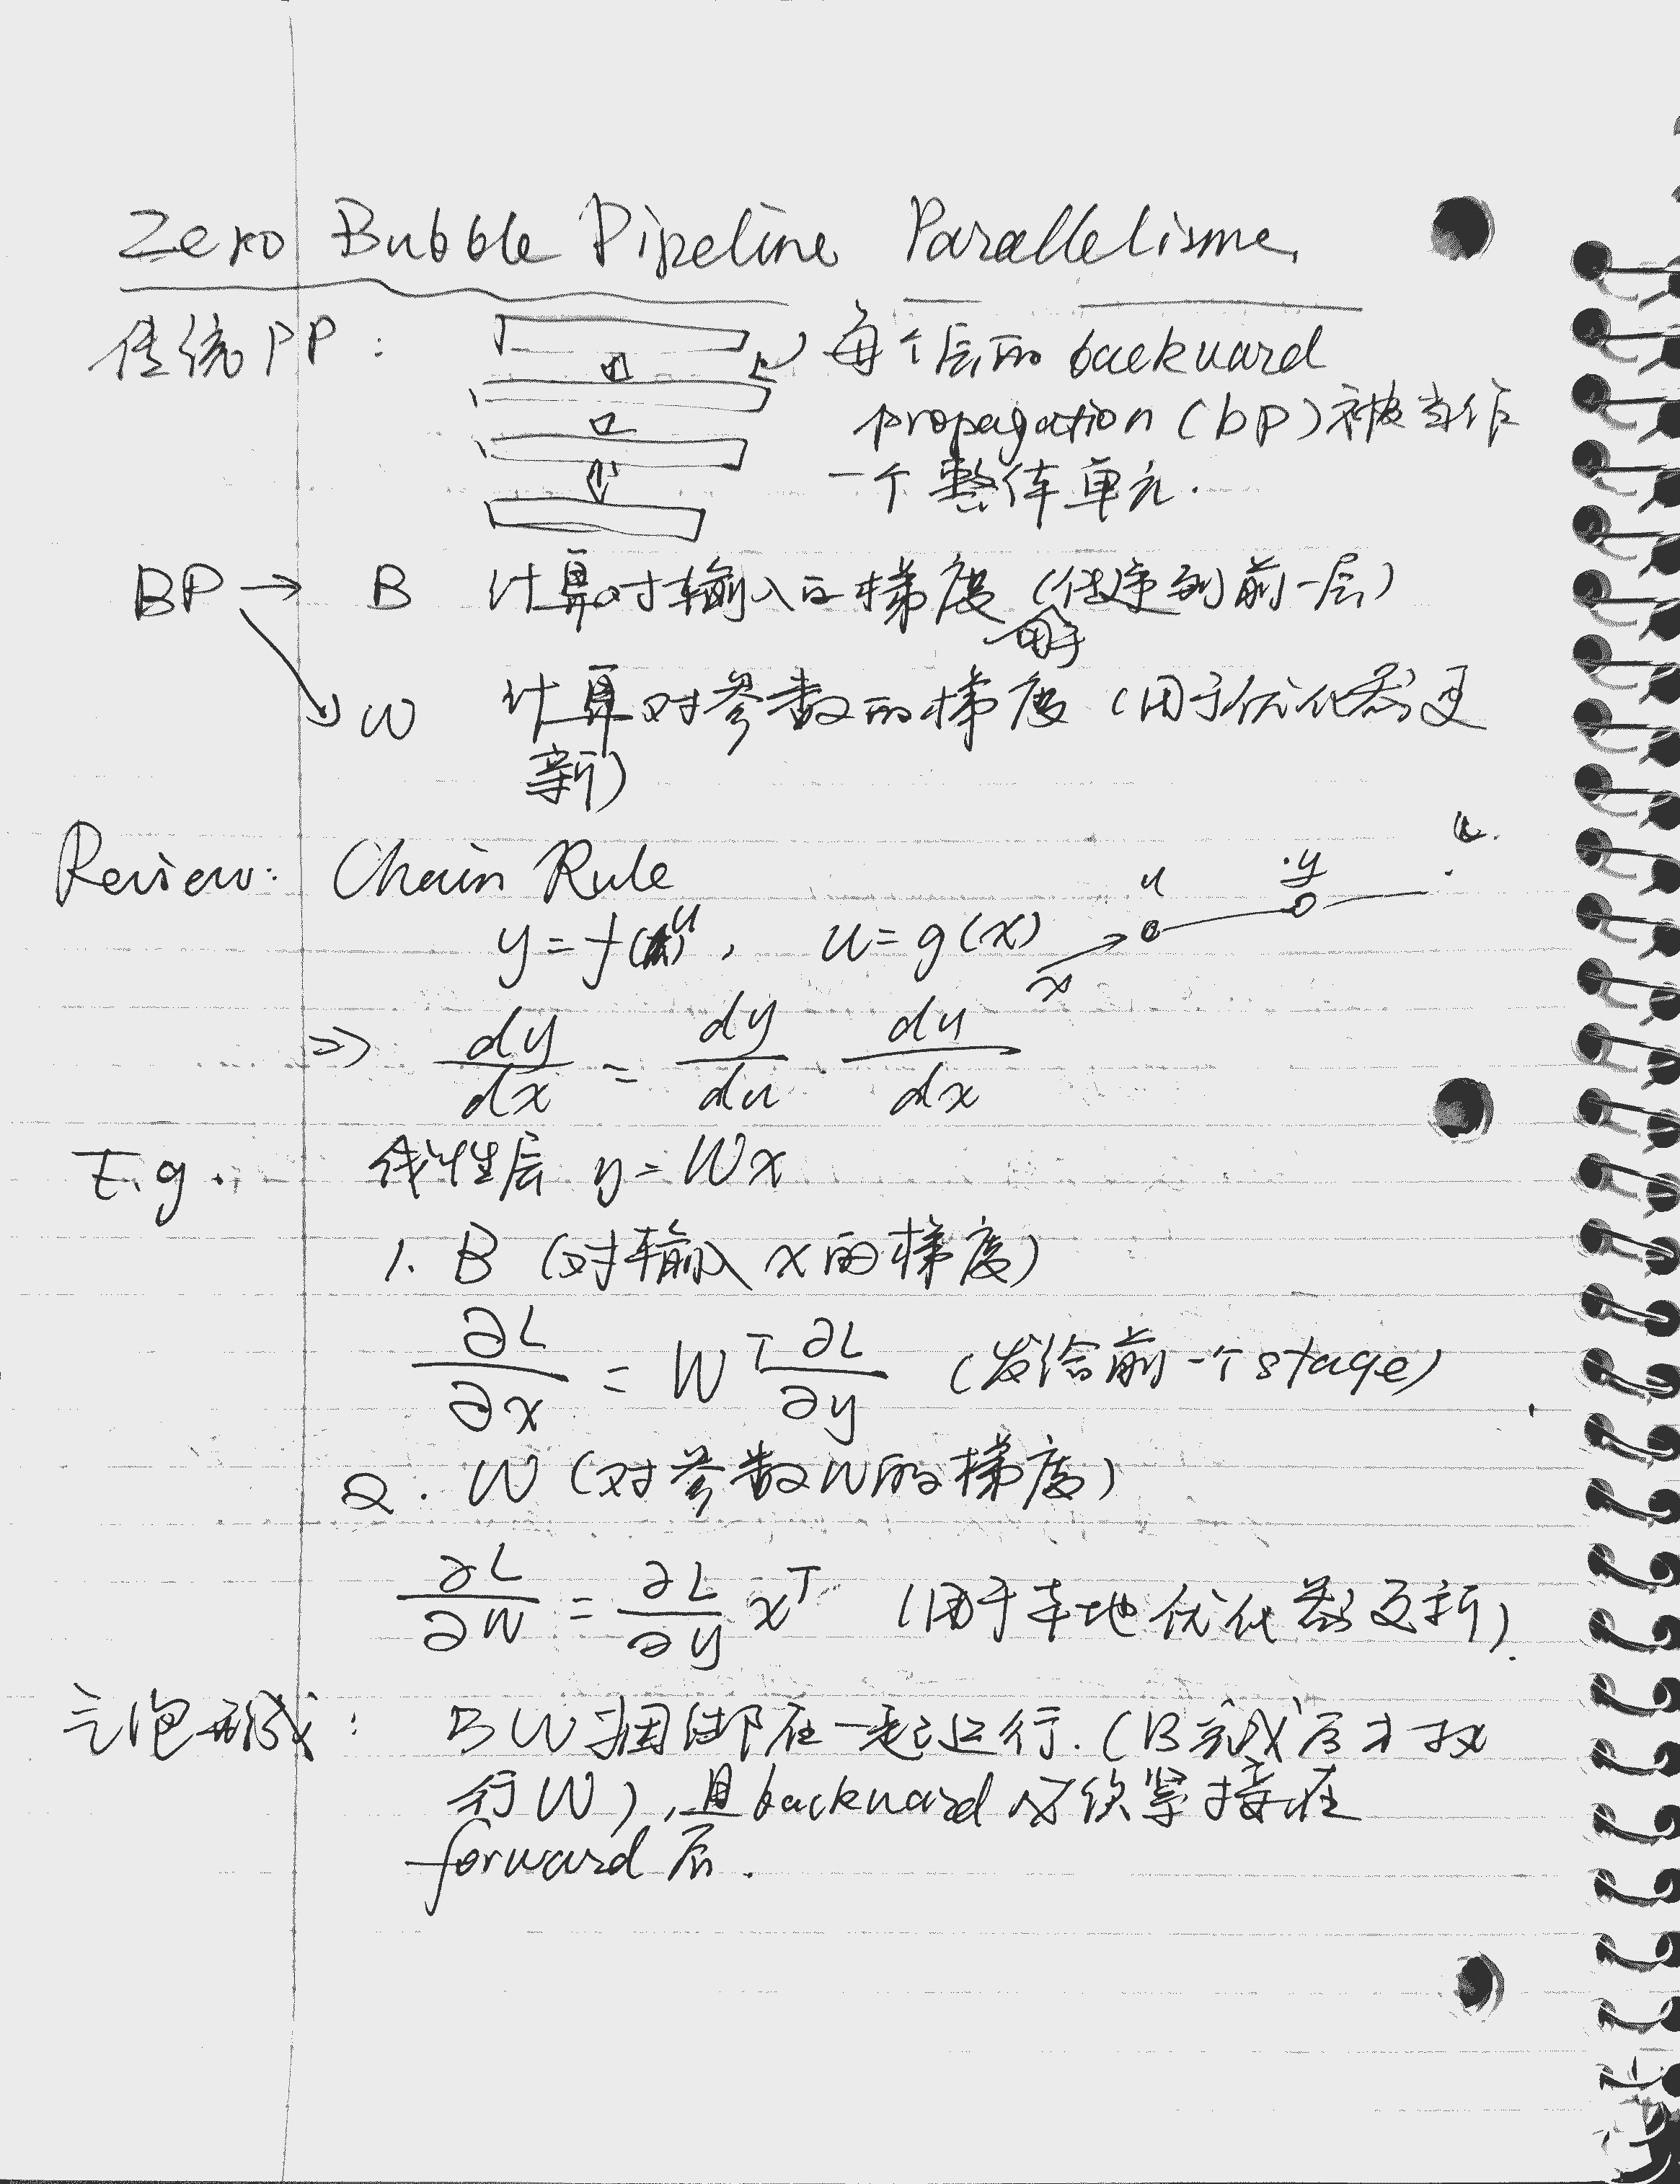 Zero Bubble Pipeline Parallelisme
传统PP: 每个层的 backward
propagation (bp) 被当作
一个整体单元.
BP → B 计算对输入的梯度 (传递到前一层)
用于
W 计算对参数的梯度 (用于优化器更
新)
Review: Chain Rule
y = f(u), u = g(x)
x u y
⇒ dy/dx = dy/du · du/dx
E.g. 线性层 y = Wx
1. B (对输入 x 的梯度)
∂L/∂x = W^T ∂L/∂y (发给前一个 stage)
2. W (对参数W的梯度)
∂L/∂W = ∂L/∂y x^T (用于本地优化器更新).
气泡形成: BW捆绑在一起运行. (B完成后才执
行W), 且backward必须紧接在
forward后.